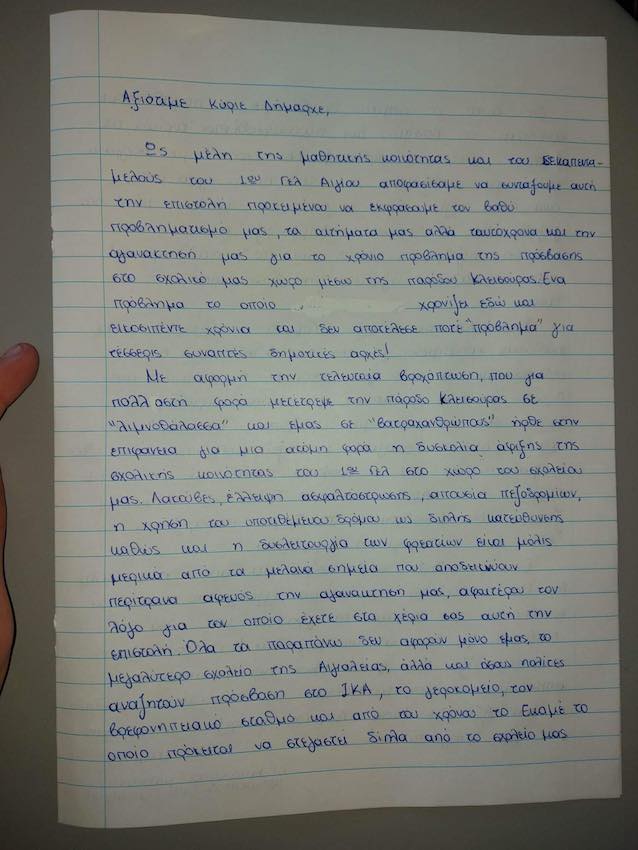 Αξιότιμε Κύριε Δήμαρχε,
Ως μέλη της μαθητικής κοινότητας και του δεκαπεντα-
μελούς του 1ου Γελ Αιγίου αποφασίσαμε να συντάξουμε αυτή
την επιστολή προκειμένου να εκφράσουμε τον βαθύ
προβληματισμό μας, τα αιτήματά μας αλλά ταυτόχρονα και την
αγανάκτησή μας για το χρόνιο πρόβλημα της πρόσβασης
στο σχολικό μας χώρο μέσω της παρόδου Κλεισούρας. Ένα
πρόβλημα το οποίο χρονίζει εδώ και
εικοσιπέντε χρόνια και δεν αποτέλεσε ποτέ "πρόβλημα" για
τέσσερις συναπτές δημοτικές αρχές!
Με αφορμή την τελευταία βροχόπτωση, που για
πολλαστή φορά μετέτρεψε την πάροδο Κλεισούρας σε
"λιμνοθάλασσα" και εμάς σε "βατραχανθρώπους" ήρθε στην
επιφάνεια για μια ακόμη φορά η δυσκολία άφιξης της
σχολικής κοινότητας του 1ου Γελ στο χώρο του σχολείου
μας. Λακούβες, έλλειψη ασφαλτόστρωσης, απουσία πεζοδρομίων,
η χρήση του υποτιθέμενου δρόμου ως διπλής κατεύθυνσης
καθώς και η δυσλειτουργία των φρεατίων είναι μόλις
μερικά από τα μελανά σημεία που αποδεικνύουν
περίτρανα αφενός την αγανάκτηση μας, αφετέρου τον
λόγο για τον οποίο έχετε στα χέρια σας αυτή την
επιστολή. Όλα τα παραπάνω δεν αφορούν μόνο εμάς, το
μεγαλύτερο σχολείο της Αιγιαλείας, αλλά και όσους πολίτες
αναζητούν πρόσβαση στο ΙΚΑ, το γεροκομείο, τον
βρεφονηπιακό σταθμό και από του χρόνου το Εκαμέ το
οποίο πρόκειται να στεγαστεί δίπλα από το σχολείο μας